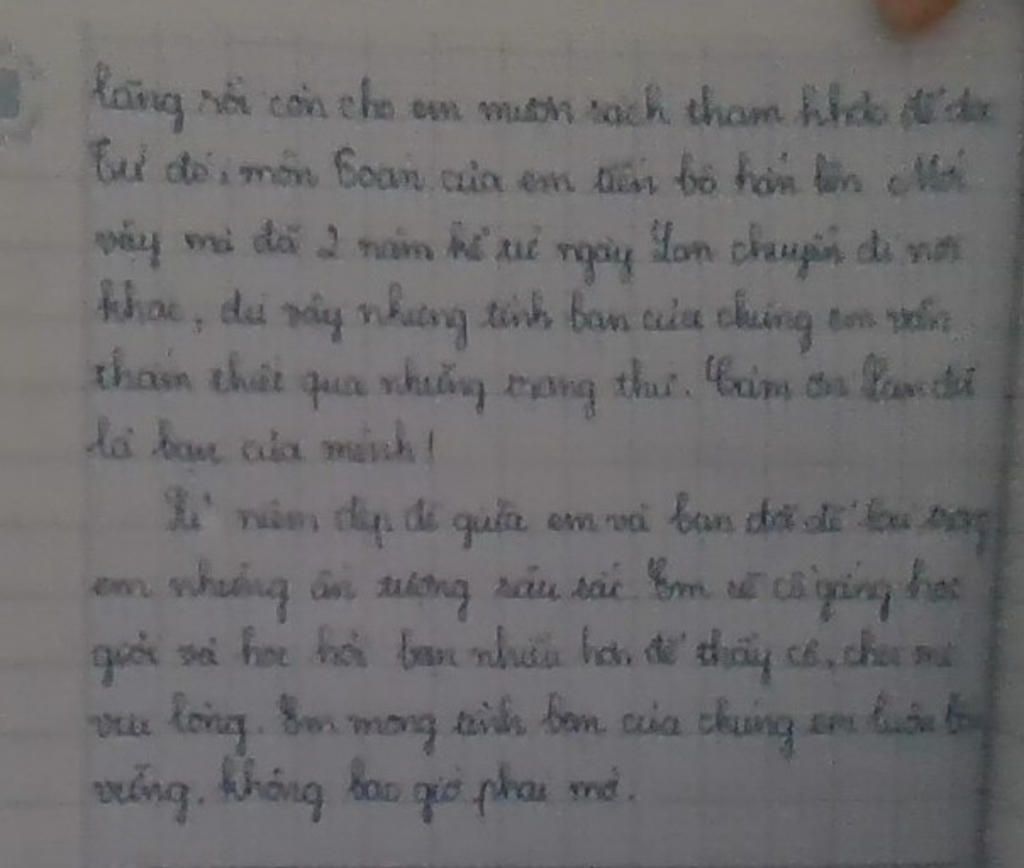 tăng rồi còn cho em mượn sách tham khảo để
Từ đó, môn Toán của em tiến bộ hẳn lên Mới
vậy mà đã 2 năm kể từ ngày Lan chuyển đi nơi
khác, dù vậy nhưng tình bạn của chúng em vẫn
thắm thiết qua những trang thư. Cảm ơn Lan đã
là bạn của mình!
Kỉ niệm đẹp đẽ giữa em và bạn đã để lại trong
em những ấn tượng sâu sắc Em sẽ cố gắng học
giỏi và học hỏi bạn nhiều hơn để thầy cô, cha mẹ
vui lòng. Em mong tình bạn của chúng em luôn
vững, không bao giờ phai mờ.